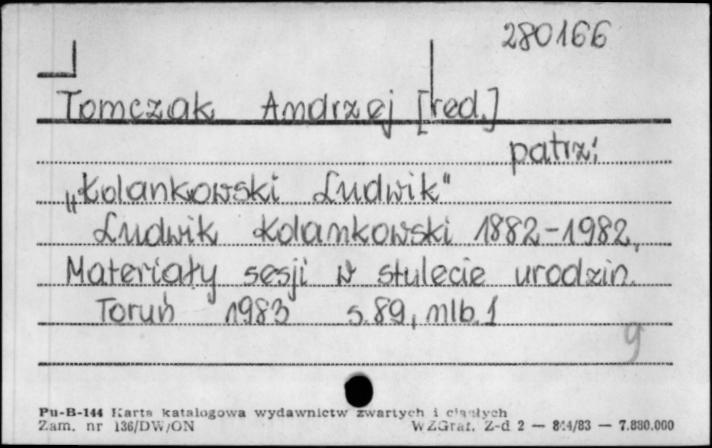 280166
Tomczak Andrzej [red.]
patrz:
"Kolankowski Ludwik"
Ludwik Kolankowski 1882-1982.
Materiały sesji w stulecie urodzin.
Toruń 1983 s. 89, nlb. 1
9
Pu-B-144 Karta katalogowa wydawnictw zwartych i ciągłych
Zam. nr 136/DW/ON WZGraf. Z-d 2 — 844/83 — 7.880.000